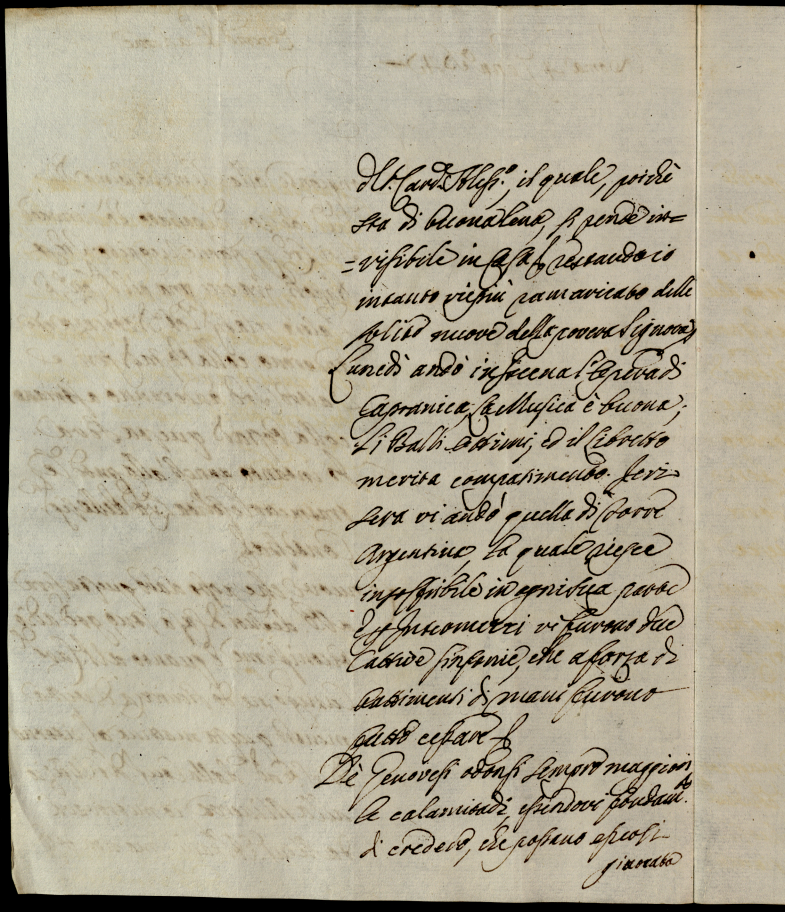 dl S.r Card. Aless.o, il quale, poichè
sta di buona lena, si rende in=
=visibile in Casa restando io
intanto viepiù ramaricato delle
solite nuove della povera Signora
Lunedì andò in scena l'Opera di
Capranica, la Musica è buona;
Li Balli ottimi, ed il Libretto
merita compatimento. Jeri
sera vi andò quella di Torre
Argentina, la quale riesce
insoffribile in ogni sua parte
Per Intermezzi vi furono due
Cattive sinfonie, che a forza di
battimenti di mani furono
fatte cessare
De' Genovesi odonsi sempre maggiori
le calamitadi, essendovi fondam.to
di credere, che possano essersi